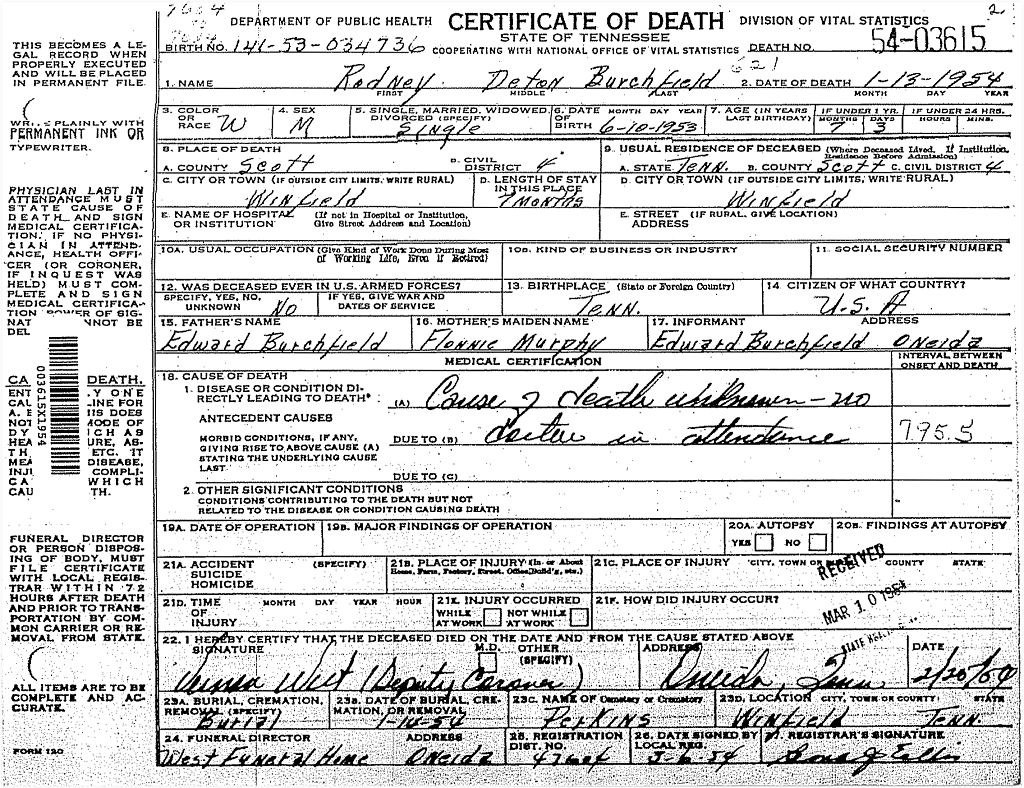 DEPARTMENT OF PUBLIC HEALTH CERTIFICATE OF DEATH DIVISION OF VITAL STATISTICS
STATE OF TENNESSEE
BIRTH NO. 141-53-034736 COOPERATING WITH NATIONAL OFFICE OF VITAL STATISTICS DEATH NO. 54-03615
621
1. NAME Rodney Deton Burchfield 2. DATE OF DEATH 1-13-1954
FIRST MIDDLE LAST MONTH DAY YEAR
3. COLOR OR RACE W 4. SEX M 5. SINGLE, MARRIED, WIDOWED, DIVORCED (SPECIFY) Single 6. DATE OF BIRTH MONTH DAY YEAR 6-10-1953 7. AGE (IN YEARS LAST BIRTHDAY) IF UNDER 1 YR. MONTHS 7 DAYS 3 IF UNDER 24 HRS. HOURS MINS.
8. PLACE OF DEATH 9. USUAL RESIDENCE OF DECEASED (Where Deceased Lived. If Institution, Residence Before Admission)
A. COUNTY Scott B. CIVIL DISTRICT 4 A. STATE Tenn. B. COUNTY Scott C. CIVIL DISTRICT 4
C. CITY OR TOWN (IF OUTSIDE CITY LIMITS, WRITE RURAL) Winfield D. LENGTH OF STAY IN THIS PLACE 7 Months D. CITY OR TOWN (IF OUTSIDE CITY LIMITS, WRITE RURAL) Winfield
E. NAME OF HOSPITAL OR INSTITUTION (If not in Hospital or Institution, Give Street Address and Location) E. STREET ADDRESS (IF RURAL, GIVE LOCATION)
10A. USUAL OCCUPATION (Give Kind of Work Done During Most of Working Life, Even if Retired) 10B. KIND OF BUSINESS OR INDUSTRY 11. SOCIAL SECURITY NUMBER
12. WAS DECEASED EVER IN U.S. ARMED FORCES? 13. BIRTHPLACE (State or Foreign Country) 14 CITIZEN OF WHAT COUNTRY?
SPECIFY, YES, NO, UNKNOWN No IF YES, GIVE WAR AND DATES OF SERVICE Tenn. U.S.A
15. FATHER'S NAME 16. MOTHER'S MAIDEN NAME 17. INFORMANT ADDRESS
Edward Burchfield Flonnie Murphy Edward Burchfield Oneida
MEDICAL CERTIFICATION INTERVAL BETWEEN ONSET AND DEATH
18. CAUSE OF DEATH
1. DISEASE OR CONDITION DIRECTLY LEADING TO DEATH* (A) Cause of death unknown - no
ANTECEDENT CAUSES
MORBID CONDITIONS, IF ANY, GIVING RISE TO ABOVE CAUSE (A) STATING THE UNDERLYING CAUSE LAST DUE TO (B) doctor in attendence 795.5
DUE TO (C)
2. OTHER SIGNIFICANT CONDITIONS
CONDITIONS CONTRIBUTING TO THE DEATH BUT NOT
RELATED TO THE DISEASE OR CONDITION CAUSING DEATH
19A. DATE OF OPERATION 19B. MAJOR FINDINGS OF OPERATION 20A. AUTOPSY YES NO 20B. FINDINGS AT AUTOPSY
21A. ACCIDENT SUICIDE HOMICIDE (SPECIFY) 21B. PLACE OF INJURY (In or About Home, Farm, Factory, Street, Office Build'g, etc.) 21C. PLACE OF INJURY CITY, TOWN OR COUNTY STATE
RECEIVED
MAR 10 1954
21D. TIME OF INJURY MONTH DAY YEAR HOUR 21E. INJURY OCCURRED WHILE AT WORK NOT WHILE AT WORK 21F. HOW DID INJURY OCCUR?
22. I HEREBY CERTIFY THAT THE DECEASED DIED ON THE DATE AND FROM THE CAUSE STATED ABOVE
SIGNATURE M.D. OTHER (SPECIFY) ADDRESS DATE
West (Deputy Coroner) Oneida, Tenn 2/20/54
23A. BURIAL, CREMATION, REMOVAL (SPECIFY) Burial 23B. DATE OF BURIAL, CREMATION, OR REMOVAL 1-14-54 23C. NAME OF Cemetery or Crematory Perkins 23D. LOCATION CITY, TOWN OR COUNTY STATE Winfield Tenn.
24. FUNERAL DIRECTOR ADDRESS 25. REGISTRATION DIST. NO. 26. DATE SIGNED BY LOCAL REG. 27. REGISTRAR'S SIGNATURE
West Funeral Home Oneida 3-6-54
THIS BECOMES A LEGAL RECORD WHEN
PROPERLY EXECUTED
AND WILL BE PLACED
IN PERMANENT FILE.
PLAINLY WITH
PERMANENT INK OR
TYPEWRITER.
PHYSICIAN LAST IN
ATTENDANCE MUST
STATE CAUSE OF
DEATH AND SIGN
MEDICAL CERTIFICATION. IF NO PHYSICIAN IN ATTENDANCE, HEALTH OFFICER (OR CORONER,
IF INQUEST WAS
HELD) MUST COMPLETE AND SIGN
MEDICAL CERTIFICATION
POWER OF SIG-
NAT NNOT BE
DEL
003615X1954
DEATH.
FUNERAL DIRECTOR
OR PERSON DISPOSING OF BODY, MUST
FILE CERTIFICATE
WITH LOCAL REGISTRAR WITHIN 72
HOURS AFTER DEATH
AND PRIOR TO TRANSPORTATION BY COMMON CARRIER OR REMOVAL FROM STATE.
ALL ITEMS ARE TO BE
COMPLETE AND ACCURATE.
FORM 120